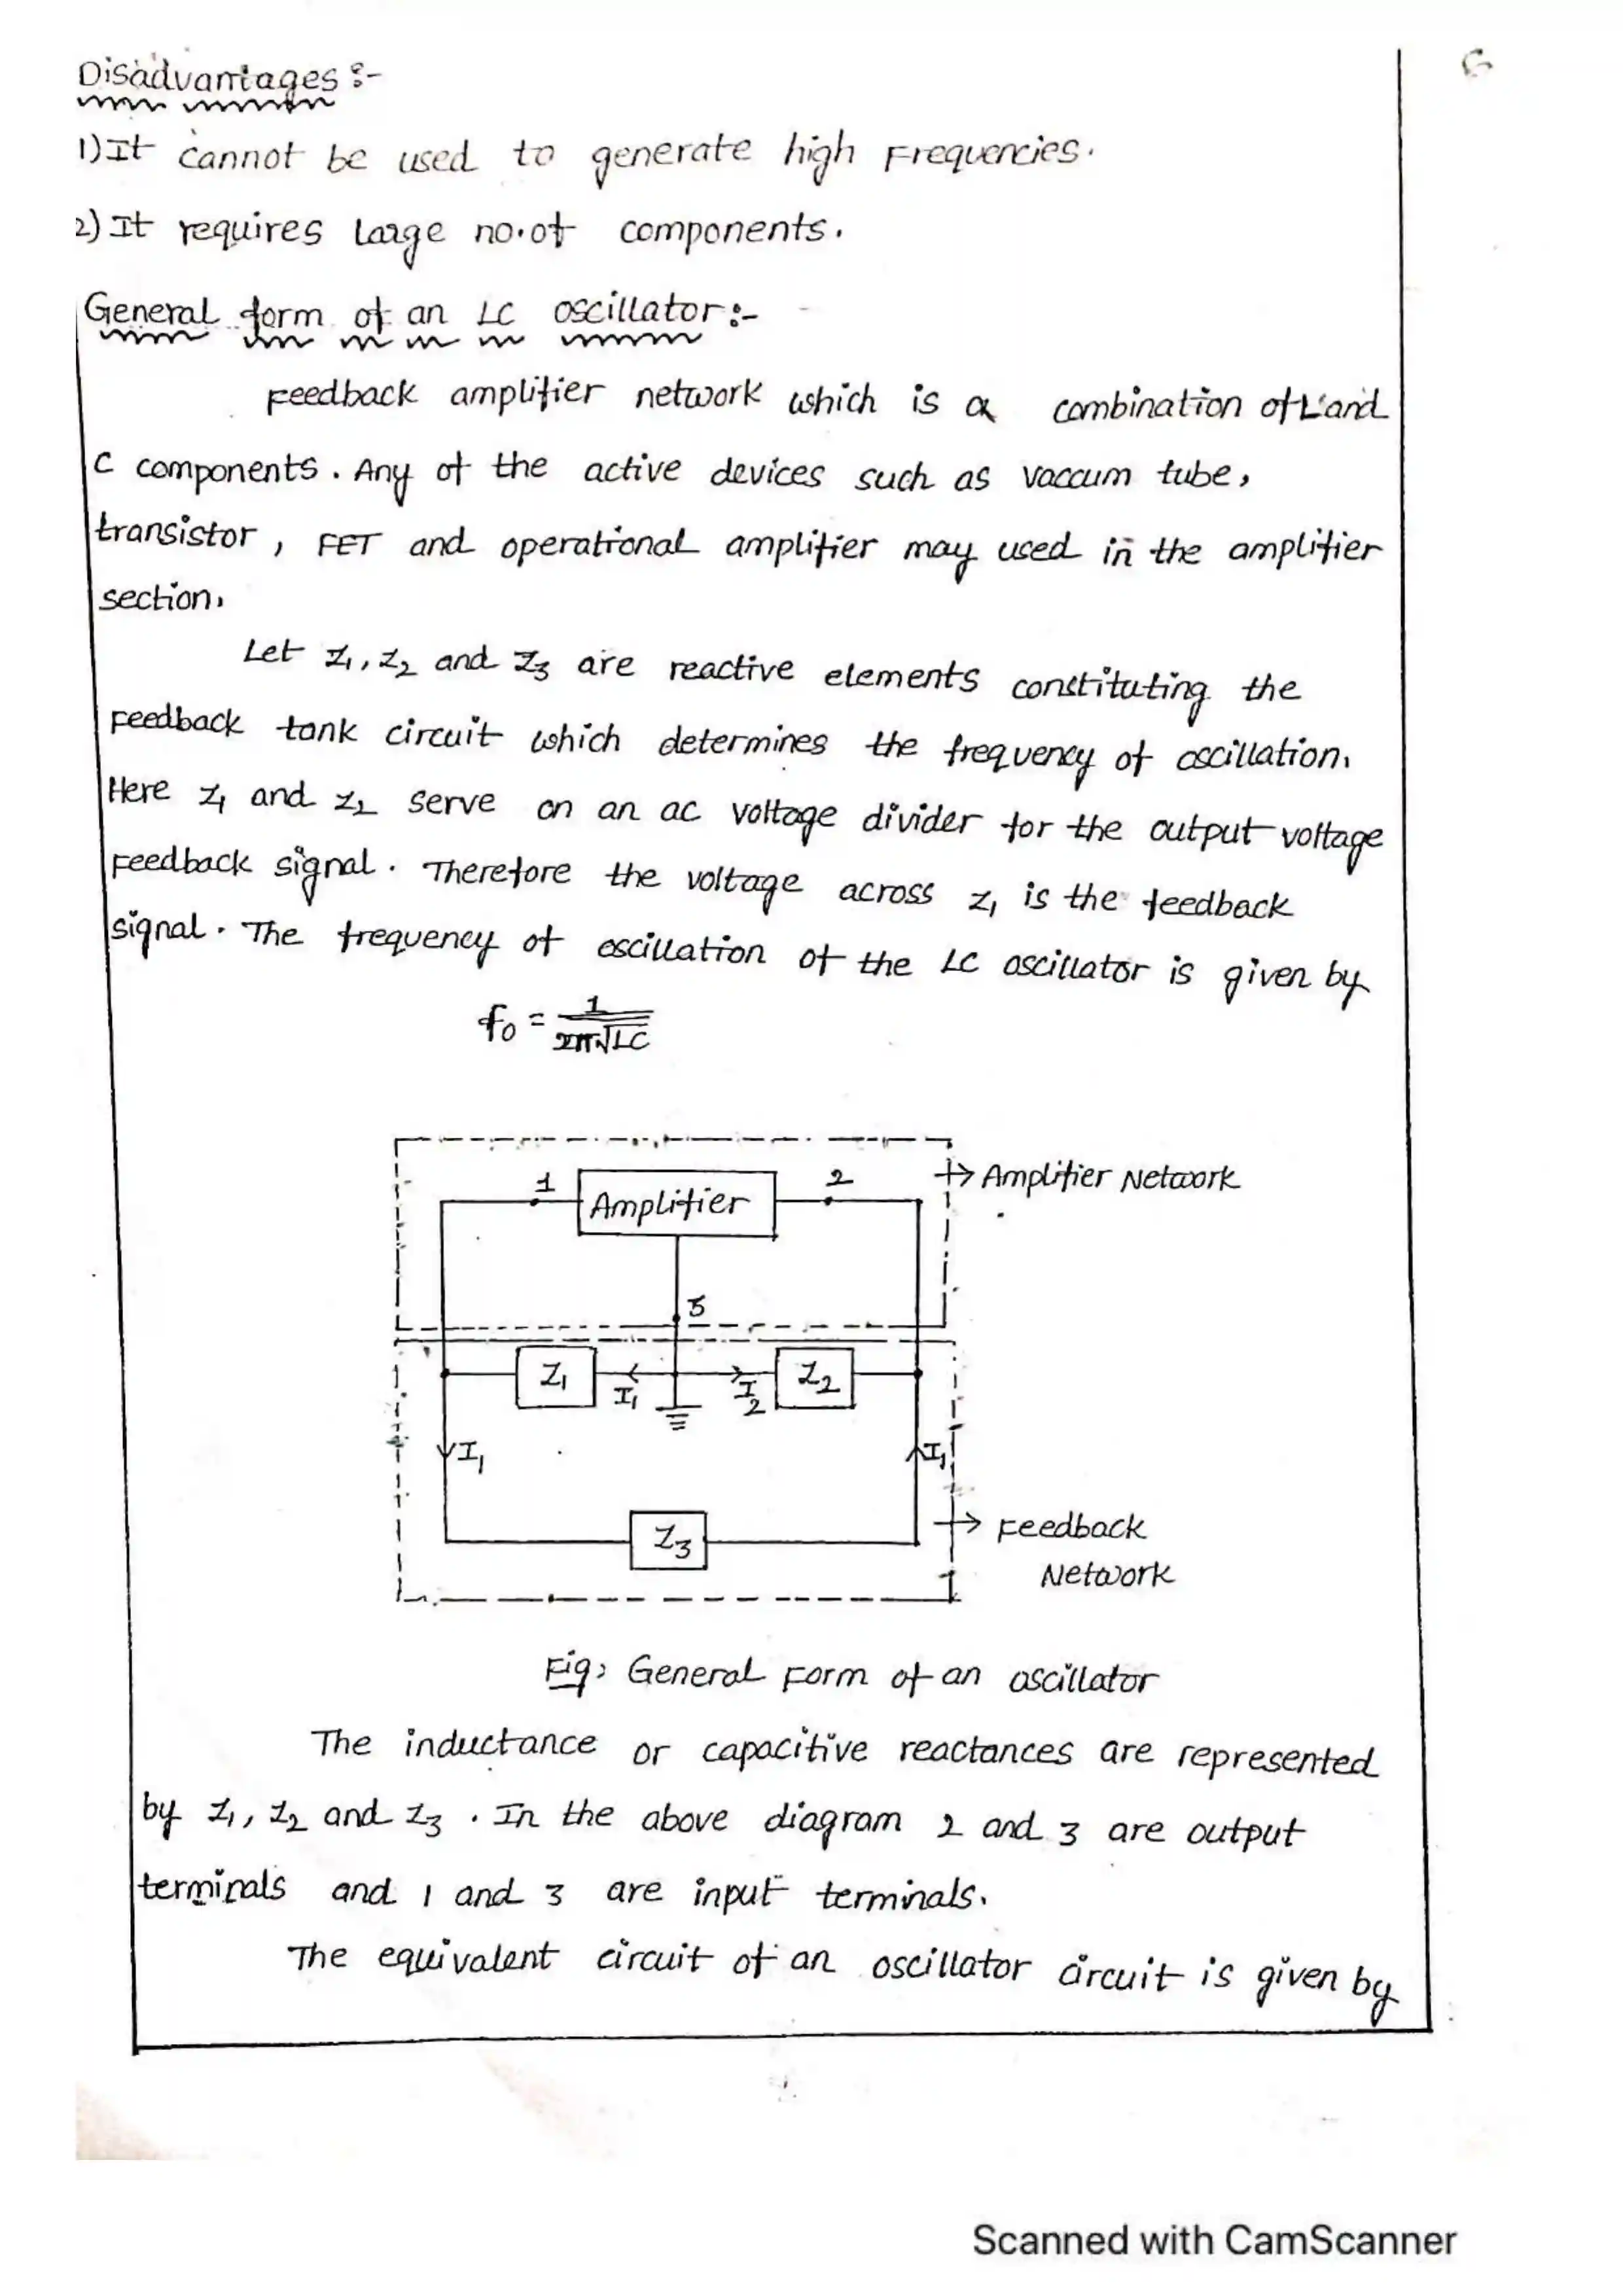 Disadvantages :-
1) It cannot be used to generate high Frequencies.
2) It requires Large no. of components.
General form of an LC oscillator :-
Feedback amplifier network which is a combination of L and
C components. Any of the active devices such as vaccum tube,
transistor, FET and operational amplifier may used in the amplifier
section.
Let Z1, Z2 and Z3 are reactive elements constituting the
Feedback tank circuit which determines the frequency of oscillation.
Here Z1 and Z2 serve on an ac voltage divider for the output voltage
Feedback signal. Therefore the voltage across Z1 is the feedback
signal. The frequency of oscillation of the LC oscillator is given by
fo = 1/2π√LC
Amplifier Network
1 Amplifier 2
3
Z1 I1 I2 Z2
I1 I1
Z3
Feedback
Network
Fig: General Form of an oscillator
The inductance or capacitive reactances are represented
by Z1, Z2 and Z3. In the above diagram 2 and 3 are output
terminals and 1 and 3 are input terminals.
The equivalent circuit of an oscillator circuit is given by
Scanned with CamScanner